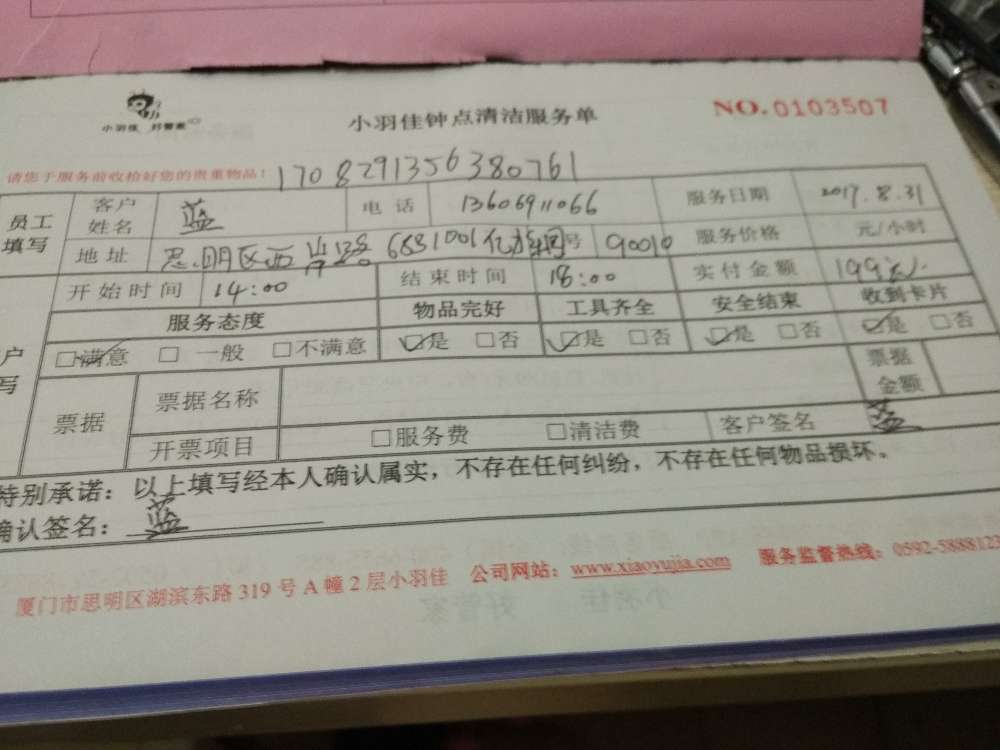 小羽佳 好管家
小羽佳钟点清洁服务单
NO.0103507
请您于服务前收拾好您的贵重物品！ 1708291356380761
员工填写 客户姓名 蓝 电话 13606911066 服务日期 2017.8.31
地址 思明区西 路 6831001 号 90010 服务价格 元/小时
开始时间 14:00 结束时间 18:00 实付金额 199元
服务态度 物品完好 工具齐全 安全结束 收到卡片
户写 □满意 □ 一般 □不满意 □是 □否 □是 □否 □是 □否 □是 □否
票据 票据名称 票据金额
开票项目 □服务费 □清洁费 客户签名 蓝
特别承诺：以上填写经本人确认属实，不存在任何纠纷，不存在任何物品损坏。
确认签名： 蓝
厦门市思明区湖滨东路 319 号 A 幢 2 层小羽佳 公司网站：www.xiaoyujia.com 服务监督热线：0592-5888123